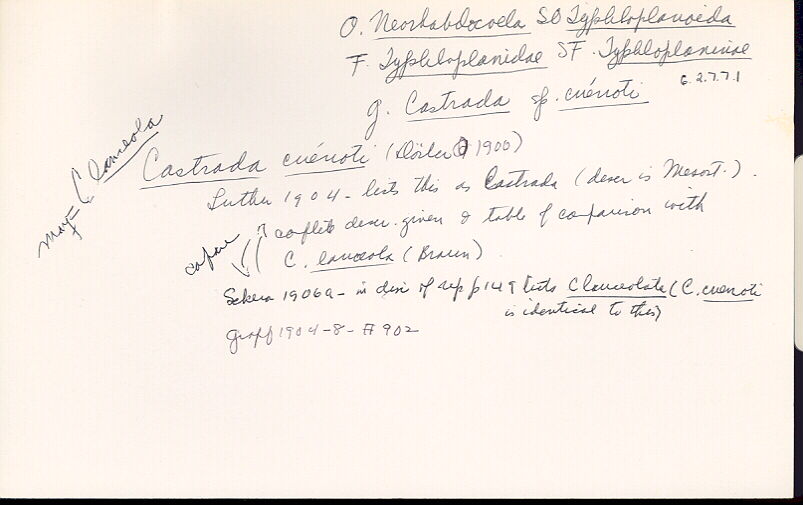 O. Neorhabdocoela SO Typhloplanoida
F. Typhloplanidae SF. Typhloplaninae
6.2.7.7.1
g. Castrada sp. cuénoti
may = C lanceola
Castrada cuénoti (Dörler 1900)
Luther 1904 - lists this as Castrada (descr is Mesost.).
compare
complete descr. given & table of comparison with
C. lanceola (Braun)
Sekera 1906a - in disc of sep p 149 lists C lanceolata (C. cuenoti
is identical to this)
Graff 1904-8 - # 902